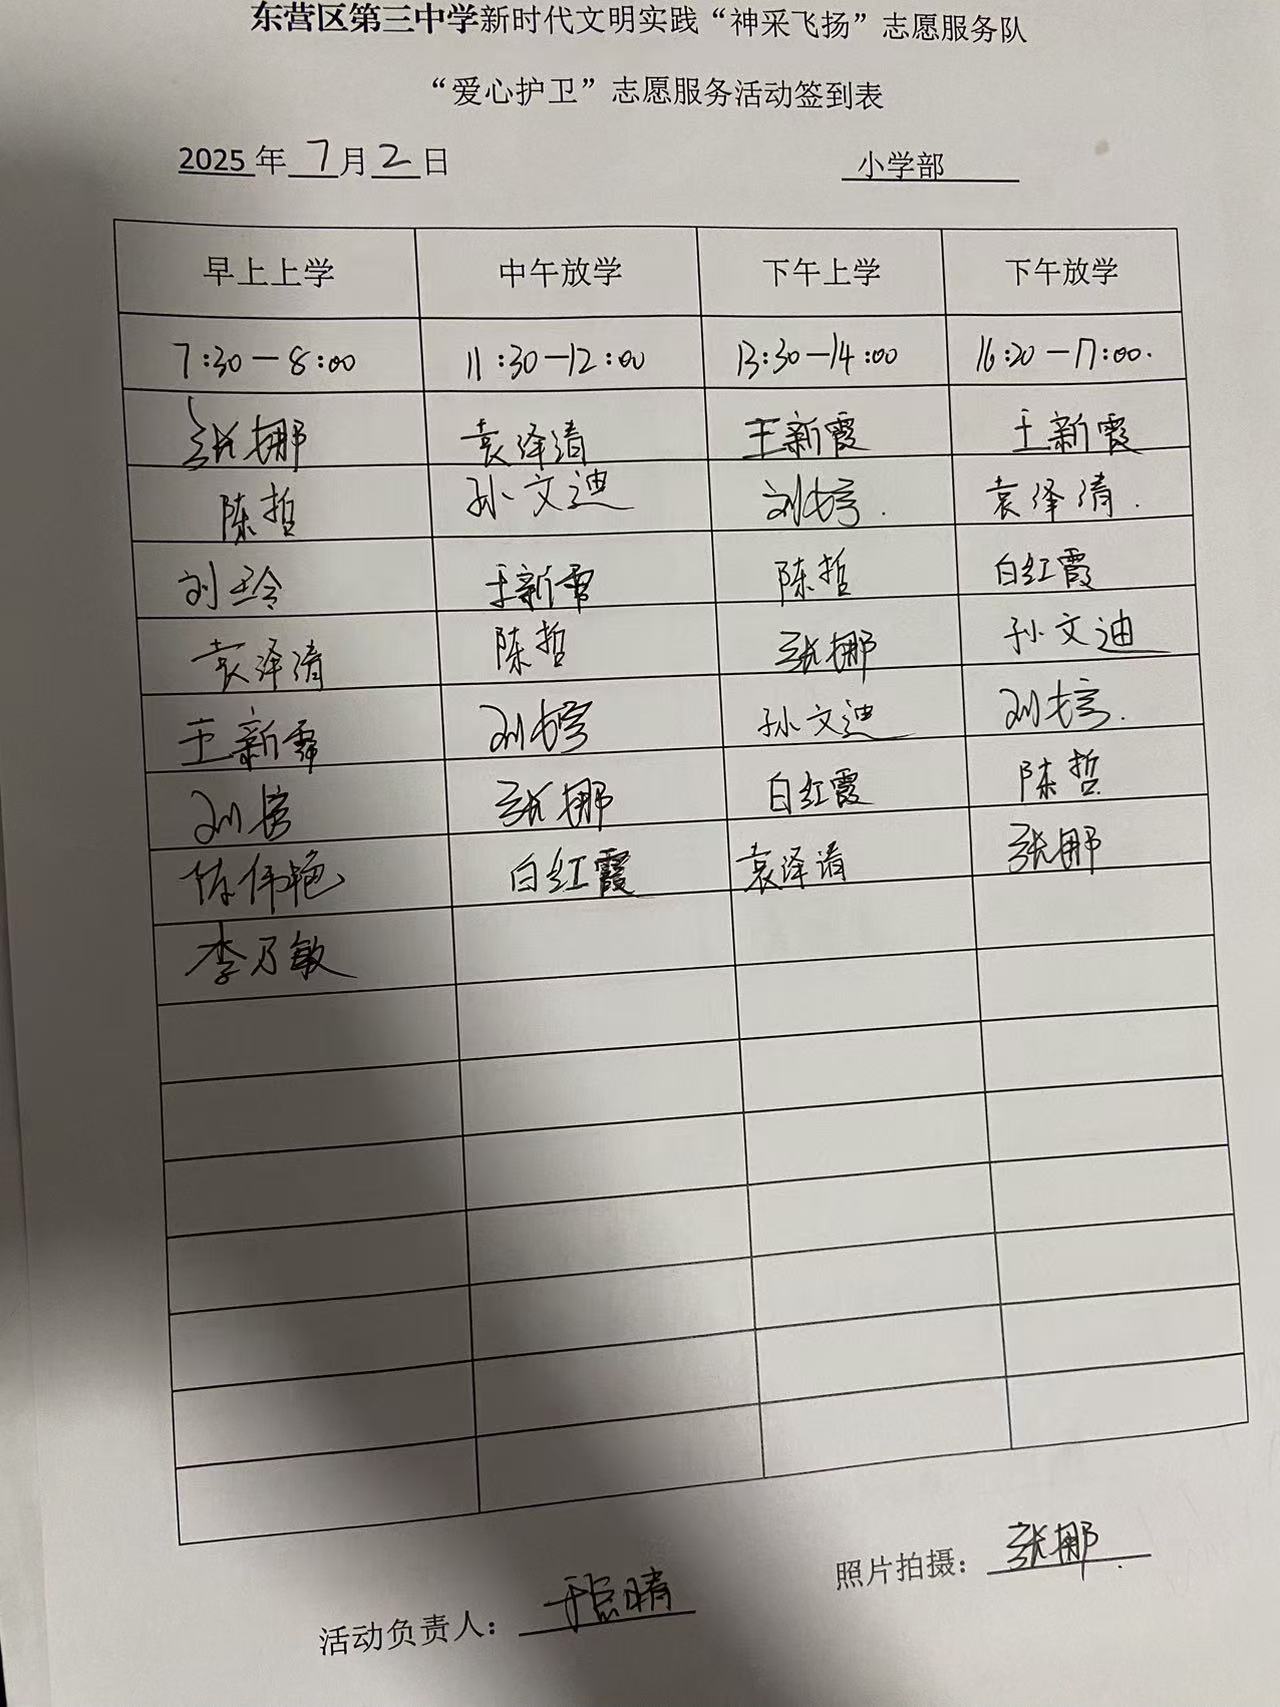 东营区第三中学新时代文明实践“神采飞扬”志愿服务队
“爱心护卫”志愿服务活动签到表
2025年 7月2日 小学部
早上上学 中午放学 下午上学 下午放学
7:30-8:00 11:30-12:00 13:30-14:00 16:20-17:00.
张娜 袁泽清 王新霞 王新霞
陈哲 孙文迪 刘婷. 袁泽清.
刘玲 王新霞 陈哲 白红霞
袁泽清 陈哲 张娜 孙文迪
王新霞 刘婷 孙文迪 刘婷.
刘婷 张娜 白红霞 陈哲
陈伟艳 白红霞 袁泽清 张娜
李乃敏
照片拍摄：张娜
活动负责人：